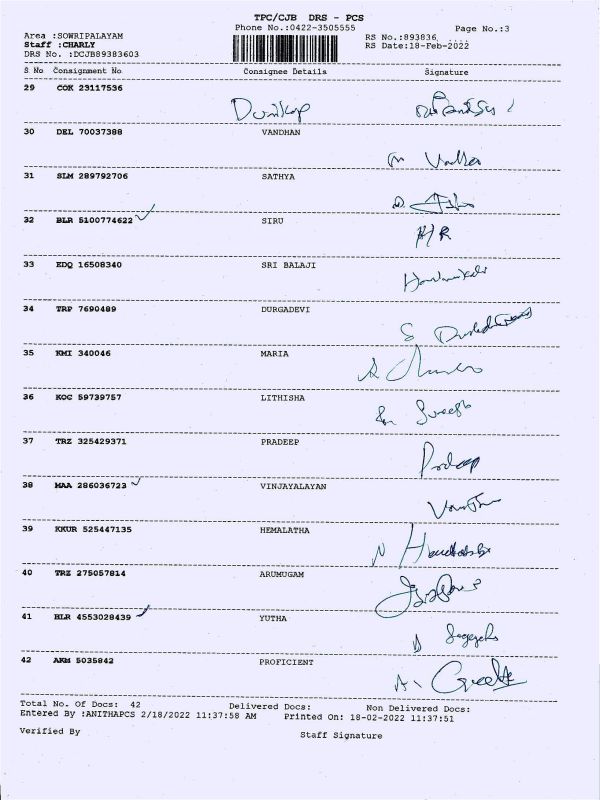 TPC/CJB DRS - PCS
Phone No.:0422-3505555 Page No.:3
Area :SOWRIPALAYAM RS No.:893836
Staff :CHARLY RS Date:18-Feb-2022
DRS No. :DCJB89383603
S No Consignment No Consignee Details Signature
29 COK 23117536
30 DEL 70037388 VANDHAN
31 SLM 289792706 SATHYA
32 BLR 5100774622 SIRU
H/R
33 EDQ 16508340 SRI BALAJI
34 TRP 7690489 DURGADEVI
35 KMI 340046 MARIA
36 KOC 59739757 LITHISHA
37 TRZ 325429371 PRADEEP
38 MAA 286036723 VINJAYALAYAN
39 KKUR 525447135 HEMALATHA
40 TRZ 275057814 ARUMUGAM
41 BLR 4553028439 YUTHA
42 AKM 5035842 PROFICIENT
Total No. Of Docs: 42 Delivered Docs: Non Delivered Docs:
Entered By :ANITHAPCS 2/18/2022 11:37:58 AM Printed On: 18-02-2022 11:37:51
Verified By Staff Signature